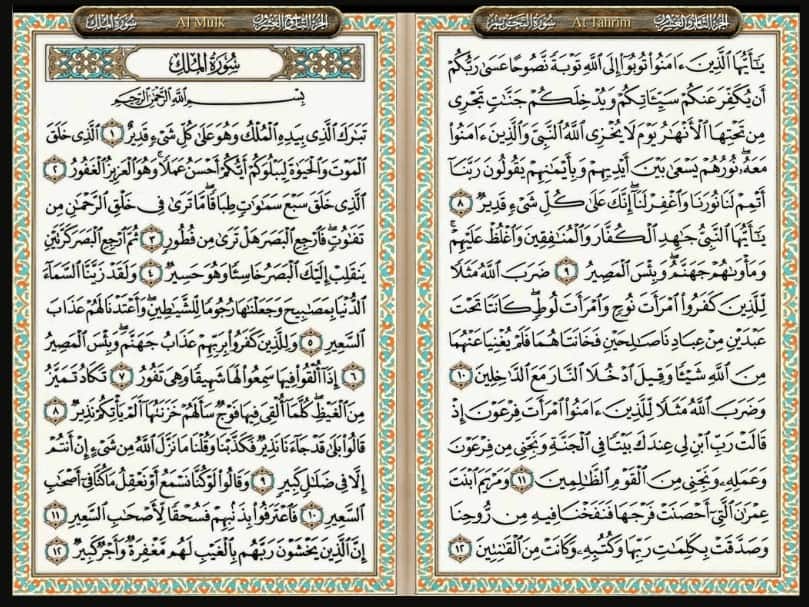 الجزء الثامن والعشرون At Tahrim سورة التحريم
يَٰٓأَيُّهَا ٱلَّذِينَ ءَامَنُوا۟ تُوبُوٓا۟ إِلَى ٱللَّهِ تَوْبَةً نَّصُوحًا عَسَىٰ رَبُّكُمْ
أَن يُكَفِّرَ عَنكُمْ سَيِّـَٔاتِكُمْ وَيُدْخِلَكُمْ جَنَّٰتٍ تَجْرِى
مِن تَحْتِهَا ٱلْأَنْهَٰرُ يَوْمَ لَا يُخْزِى ٱللَّهُ ٱلنَّبِىَّ وَٱلَّذِينَ ءَامَنُوا۟
مَعَهُۥ ۖ نُورُهُمْ يَسْعَىٰ بَيْنَ أَيْدِيهِمْ وَبِأَيْمَٰنِهِمْ يَقُولُونَ رَبَّنَآ
أَتْمِمْ لَنَا نُورَنَا وَٱغْفِرْ لَنَآ ۖ إِنَّكَ عَلَىٰ كُلِّ شَىْءٍ قَدِيرٌ ٨
يَٰٓأَيُّهَا ٱلنَّبِىُّ جَٰهِدِ ٱلْكُفَّارَ وَٱلْمُنَٰفِقِينَ وَٱغْلُظْ عَلَيْهِمْ ۚ
وَمَأْوَىٰهُمْ جَهَنَّمُ ۖ وَبِئْسَ ٱلْمَصِيرُ ٩ ضَرَبَ ٱللَّهُ مَثَلًا
لِّلَّذِينَ كَفَرُوا۟ ٱمْرَأَتَ نُوحٍ وَٱمْرَأَتَ لُوطٍ ۖ كَانَتَا تَحْتَ
عَبْدَيْنِ مِنْ عِبَادِنَا صَٰلِحَيْنِ فَخَانَتَاهُمَا فَلَمْ يُغْنِيَا عَنْهُمَا
مِنَ ٱللَّهِ شَيْـًٔا وَقِيلَ ٱدْخُلَا ٱلنَّارَ مَعَ ٱلدَّٰخِلِينَ ١٠
وَضَرَبَ ٱللَّهُ مَثَلًا لِّلَّذِينَ ءَامَنُوا۟ ٱمْرَأَتَ فِرْعَوْنَ إِذْ
قَالَتْ رَبِّ ٱبْنِ لِى عِندَكَ بَيْتًا فِى ٱلْجَنَّةِ وَنَجِّنِى مِن فِرْعَوْنَ
وَعَمَلِهِۦ وَنَجِّنِى مِنَ ٱلْقَوْمِ ٱلظَّٰلِمِينَ ١١ وَمَرْيَمَ ٱبْنَتَ
عِمْرَٰنَ ٱلَّتِىٓ أَحْصَنَتْ فَرْجَهَا فَنَفَخْنَا فِيهِ مِن رُّوحِنَا
وَصَدَّقَتْ بِكَلِمَٰتِ رَبِّهَا وَكُتُبِهِۦ وَكَانَتْ مِنَ ٱلْقَٰنِتِينَ ١٢
الجزء التاسع والعشرون Al Mulk سورة الملك
سُورَةُ المُلْكِ
بِسْمِ ٱللَّهِ ٱلرَّحْمَٰنِ ٱلرَّحِيمِ
تَبَٰرَكَ ٱلَّذِى بِيَدِهِ ٱلْمُلْكُ وَهُوَ عَلَىٰ كُلِّ شَىْءٍ قَدِيرٌ ١ ٱلَّذِى خَلَقَ
ٱلْمَوْتَ وَٱلْحَيَوٰةَ لِيَبْلُوَكُمْ أَيُّكُمْ أَحْسَنُ عَمَلًا ۚ وَهُوَ ٱلْعَزِيزُ ٱلْغَفُورُ ٢
ٱلَّذِى خَلَقَ سَبْعَ سَمَٰوَٰتٍ طِبَاقًا ۖ مَّا تَرَىٰ فِى خَلْقِ ٱلرَّحْمَٰنِ مِن
تَفَٰوُتٍ ۖ فَٱرْجِعِ ٱلْبَصَرَ هَلْ تَرَىٰ مِن فُطُورٍ ٣ ثُمَّ ٱرْجِعِ ٱلْبَصَرَ كَرَّتَيْنِ
يَنقَلِبْ إِلَيْكَ ٱلْبَصَرُ خَاسِئًا وَهُوَ حَسِيرٌ ٤ وَلَقَدْ زَيَّنَّا ٱلسَّمَآءَ
ٱلدُّنْيَا بِمَصَٰبِيحَ وَجَعَلْنَٰهَا رُجُومًا لِّلشَّيَٰطِينِ ۖ وَأَعْتَدْنَا لَهُمْ عَذَابَ
ٱلسَّعِيرِ ٥ وَلِلَّذِينَ كَفَرُوا۟ بِرَبِّهِمْ عَذَابُ جَهَنَّمَ ۖ وَبِئْسَ ٱلْمَصِيرُ
٦ إِذَآ أُلْقُوا۟ فِيهَا سَمِعُوا۟ لَهَا شَهِيقًا وَهِىَ تَفُورُ ٧ تَكَادُ تَمَيَّزُ
مِنَ ٱلْغَيْظِ ۖ كُلَّمَآ أُلْقِىَ فِيهَا فَوْجٌ سَأَلَهُمْ خَزَنَتُهَآ أَلَمْ يَأْتِكُمْ نَذِيرٌ ٨
قَالُوا۟ بَلَىٰ قَدْ جَآءَنَا نَذِيرٌ فَكَذَّبْنَا وَقُلْنَا مَا نَزَّلَ ٱللَّهُ مِن شَىْءٍ إِنْ أَنتُمْ
إِلَّا فِى ضَلَٰلٍ كَبِيرٍ ٩ وَقَالُوا۟ لَوْ كُنَّا نَسْمَعُ أَوْ نَعْقِلُ مَا كُنَّا فِىٓ أَصْحَٰبِ
ٱلسَّعِيرِ ١٠ فَٱعْتَرَفُوا۟ بِذَنۢبِهِمْ فَسُحْقًا لِّأَصْحَٰبِ ٱلسَّعِيرِ ١١
إِنَّ ٱلَّذِينَ يَخْشَوْنَ رَبَّهُم بِٱلْغَيْبِ لَهُم مَّغْفِرَةٌ وَأَجْرٌ كَبِيرٌ ١٢